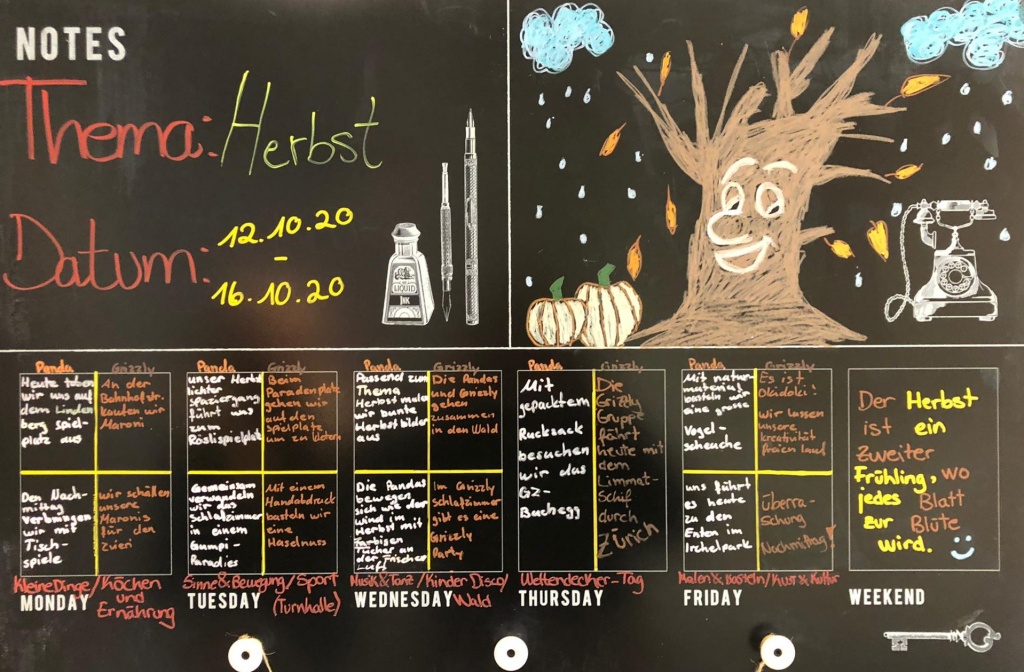 NOTES
Thema: Herbst
Datum: 12.10.20
-
16.10.20
LIQUID
INK
Panda
Heute toben
wir uns auf
dem Linden
berg spiel-
platz aus
Grizzly
An der
Bahnhofstr.
kaufen wir
Maroni
Den Nach-
mittag
verbringen
wir mit
Tisch-
spiele
wir schälen
unsere
Maronis
für den
Zvieri
Kleine Dinge/Kochen
und
Ernährung
MONDAY
Panda
unser Herbst
lichter
spaziergang
führt uns
zum
Röslispielplatz
Grizzly
Beim
Paradenplatz
gehen wir
auf den
spielplatz
um zu klettern
Gemeinsam
verwandeln
wir das
Schlafzimmer
in einem
Gumpi-
Paradies
Mit einem
Handabdruck
basteln wir
eine
Haselnuss
Sinne & Bewegung/Sport
(Turnhalle)
TUESDAY
Panda
Passend zum
Thema
Herbst male
wir bunte
Herbst bilder
aus
Grizzly
Die Pandas
und Grizzly
gehen
zusammen
in den Wald
Die Pandas
bewegen
sich wie der
wind im
Herbst mit
farbigen
Tücher an
der frischer
Luft
Im Grizzly
schlafzimmer
gibt es eine
Grizzly
Party
Musik & Tanz/Kinder Disco/
Wald
WEDNESDAY
Panda
Mit
gepacktem
Rucksack
besuchen
wir das
GZ-
Buchegg
Grizzly
Die
Grizzly
Gruppe
fährt
heute mit
dem
Limmat-
Schiff
durch
Zürich
Weltendecker-Tag
THURSDAY
Panda
Mit natur-
material
basteln wir
eine grosse
Vogel-
scheuche
Grizzly
Es ist
Okidoki!
wir lassen
unsere
kreativität
freien lauf
uns führt
es heute
zu den
Enten im
Irchelpark
Überra-
schung
Nachmittag!
Malen & basteln/Kust & Kultur
FRIDAY
Der Herbst
ist ein
zweiter
Frühling, wo
jedes Blatt
zur Blüte
wird.
WEEKEND